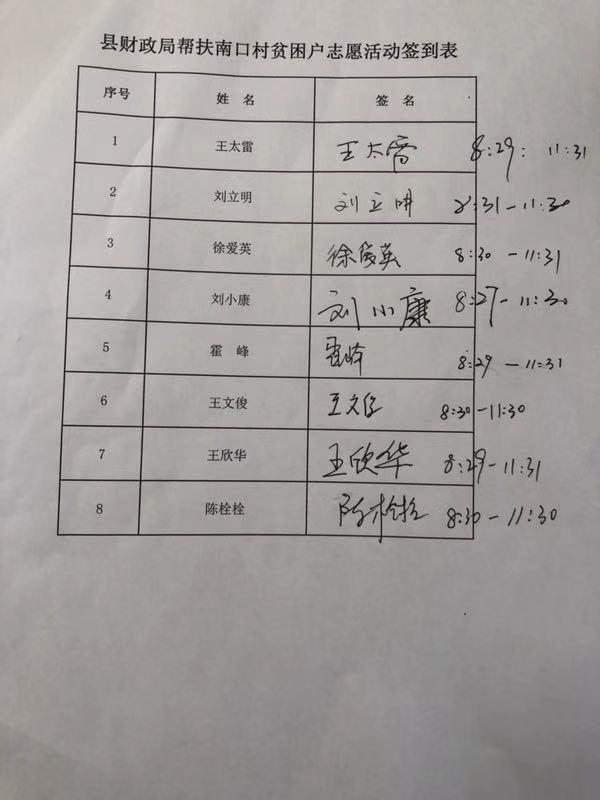 县财政局帮扶南口村贫困户志愿活动签到表
序号 姓 名 签 名
1 王太雷 王太雷 8:29: 11:31
2 刘立明 刘立明 8:31-11:30
3 徐爱英 徐爱英 8:30-11:31
4 刘小康 刘小康 8:27-11:30
5 霍 峰 霍峰 8:29-11:31
6 王文俊 王文俊 8:30-11:30
7 王欣华 王欣华 8:29-11:31
8 陈栓栓 陈栓栓 8:30-11:30